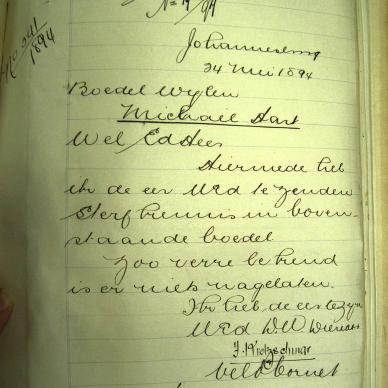 No 541/1894
No 19/94
Johannesburg
24 Mei 1894
Boedel Wylen
Michael Hart
Wel Ed Heer
Hiermede heb
ik de eer UEd te zenden
Sterf kennis in boven-
staande boedel.
Zoo verre bekend
is er niets nagelaten.
Ik heb de eer te zyn
UEd DW Dienaar
Veld Cornet